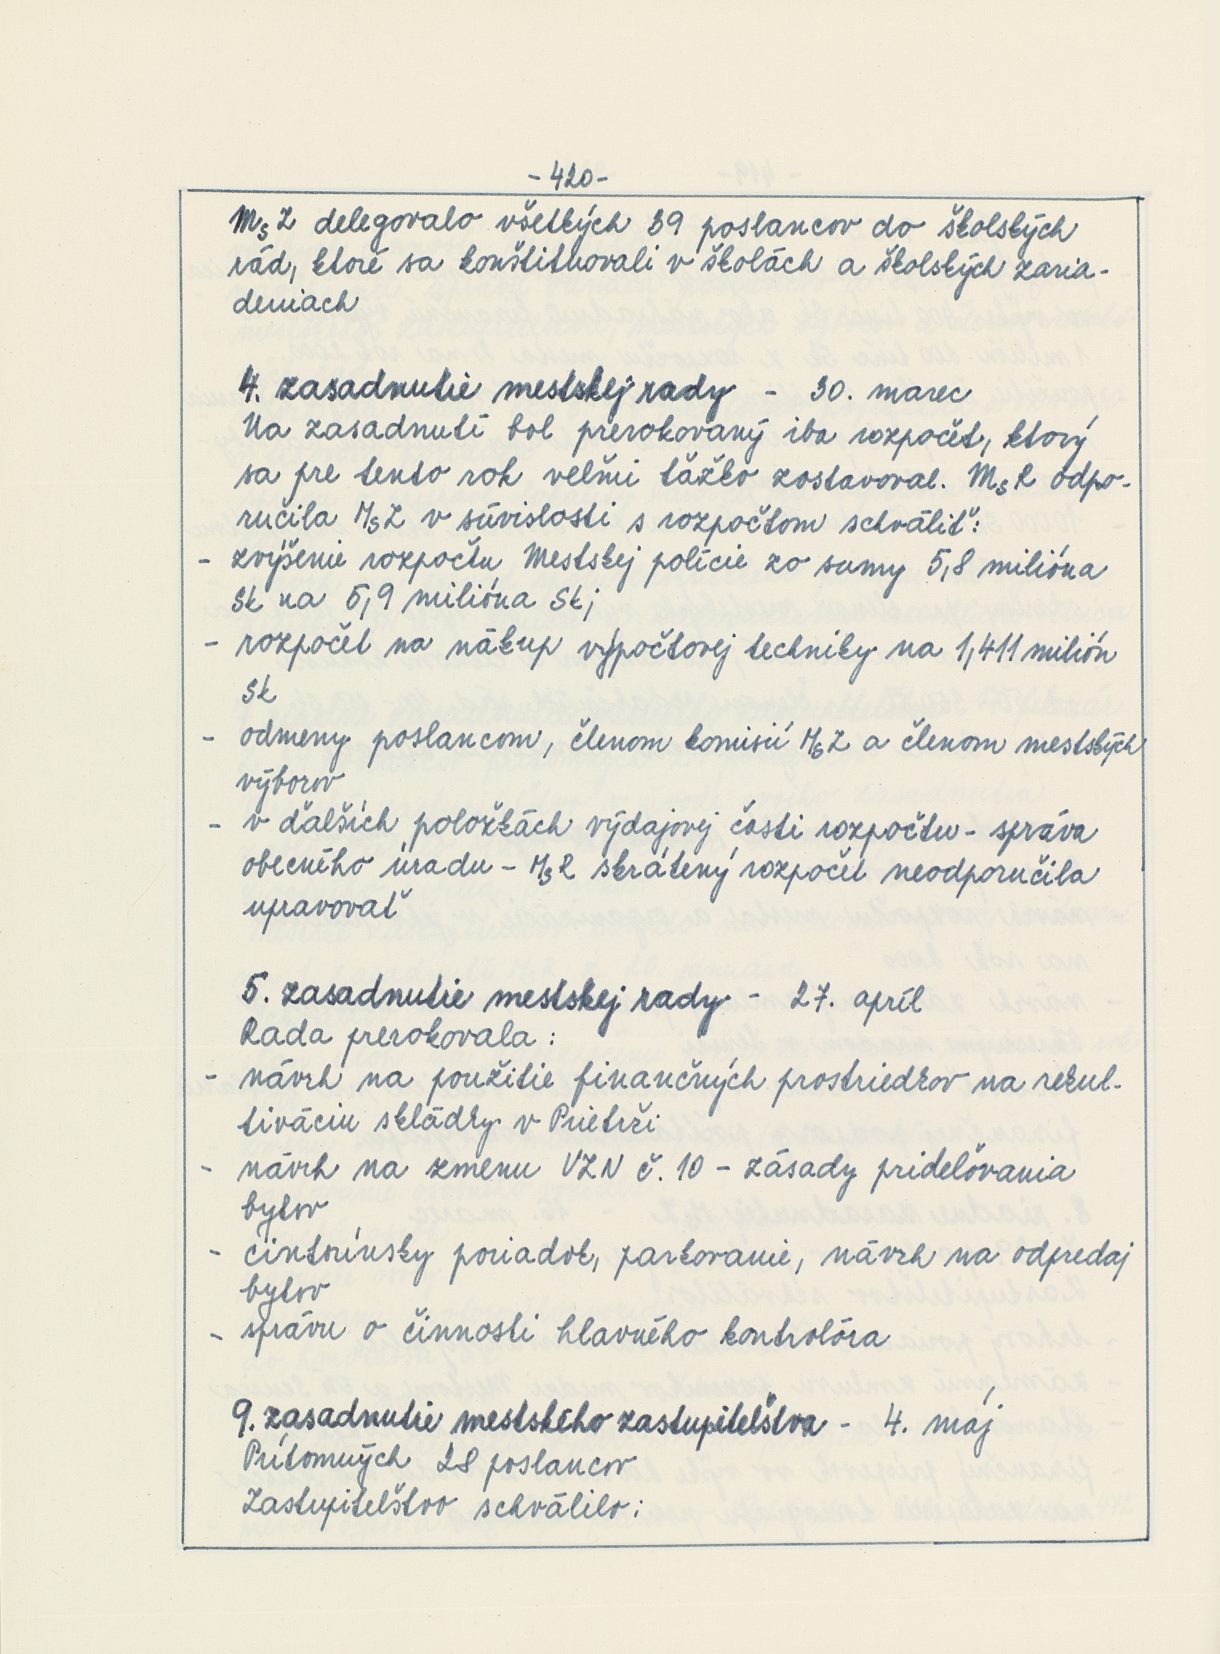 -420-
MsZ delegovalo všetkých 39 poslancov do školských
rád, ktoré sa konštituovali v školách a školských zaria-
deniach
4. zasadnutie mestskej rady - 30. marec
Na zasadnutí bol prerokovaný iba rozpočet, ktorý
sa pre tento rok veľmi ťažko zostavoval. MsR odpo-
ručila MsZ v súvislosti s rozpočtom schváliť:
- zvýšenie rozpočtu Mestskej polície zo sumy 5,8 milióna
Sk na 5,9 milióna Sk;
- rozpočet na nákup výpočtovej techniky na 1,411 milión
Sk
- odmeny poslancom, členom komisií MsZ a členom mestských
výborov
- v ďalších položkách výdajovej časti rozpočtu - správa
obecného úradu - MsR skrátený rozpočet neodporučila
upravovať
5. zasadnutie mestskej rady - 27. apríl
Rada prerokovala:
- návrh na použitie finančných prostriedkov na rekul-
tiváciu skládky v Prietrži
- návrh na zmenu VZN č. 10 - zásady prideľovania
bytov
- cintorínsky poriadok, parkovanie, návrh na odpredaj
bytov
- správu o činnosti hlavného kontrolóra
9. zasadnutie mestského zastupiteľstva - 4. máj
Prítomných 28 poslancov
Zastupiteľstvo schválilo: